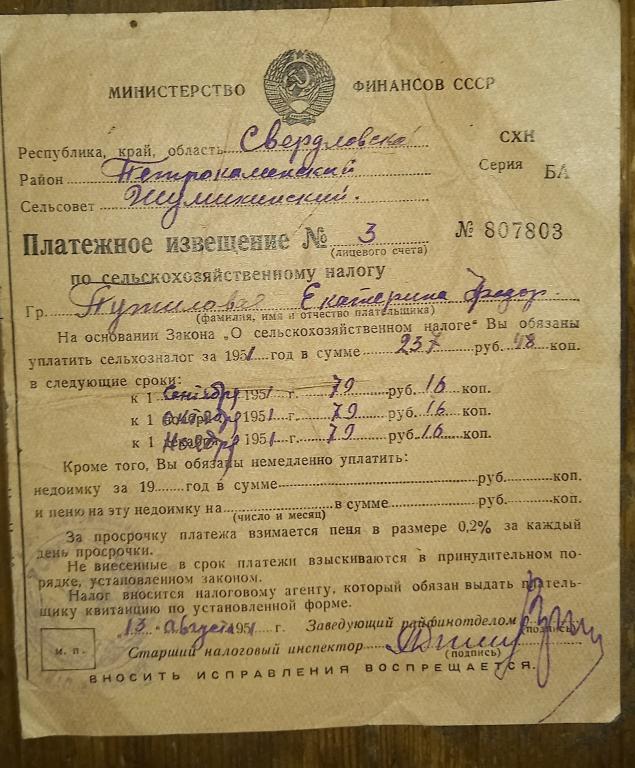 МИНИСТЕРСТВО ФИНАНСОВ СССР
Республика, край, область Свердловско
СХН
Район Петрокаменский
Серия БА
Сельсовет Шумихинский.
Платежное извещение № 3 № 807803
(лицевого счета)
по сельскохозяйственному налогу
Гр. Путилова Екатерина Федор.
(фамилия, имя и отчество плательщика)
На основании Закона „О сельскохозяйственном налоге“ Вы обязаны
уплатить сельхозналог за 1951 год в сумме 237 руб. 48 коп.
в следующие сроки:
к 1 сентябр 1951 г. 79 руб. 16 коп.
к 1 октябр 1951 г. 79 руб. 16 коп.
к 1 ноябр 1951 г. 79 руб. 16 коп.
Кроме того, Вы обязаны немедленно уплатить:
недоимку за 19 год в сумме руб. коп.
и пеню на эту недоимку на в сумме руб. коп.
(число и месяц)
За просрочку платежа взимается пеня в размере 0,2% за каждый
день просрочки.
Не внесенные в срок платежи взыскиваются в принудительном по-
рядке, установленном законом.
Налог вносится налоговому агенту, который обязан выдать платель-
щику квитанцию по установленной форме.
13 августа 1951 г. Заведующий райфинотделом
(подпись)
м. п.
Старший налоговый инспектор
(подпись)
ВНОСИТЬ ИСПРАВЛЕНИЯ ВОСПРЕЩАЕТСЯ.